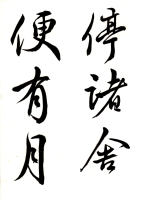 停诸舍
便有月